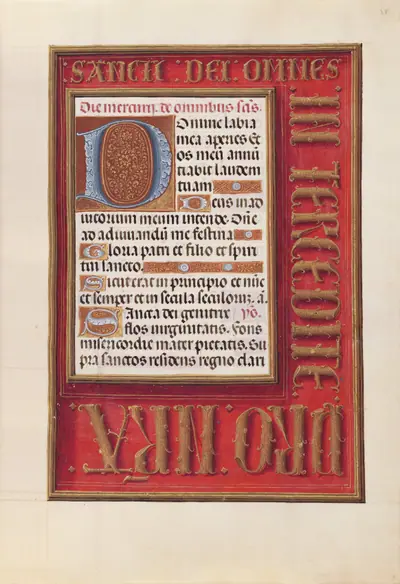 SANCTI DEI OMNES
INTERCEDITE
PRO NRA
Die mercurij. de omnibus sctis.
Domine labia
mea aperies Et
os meū annū
tiabit laudem
tuam
Deus in ad
iutorium meum intende. Dn̄e
ad adiuuandū me festina
Gloria patri et filio et spiri
tui sancto.
Sicut erat in principio et nūc
et semper et in secula seculorꝝ. a.
Sancta dei genitrix ys.
flos uirginitatis. Fons
misericordie mater pietatis. Su
pra sanctos residens regno clari